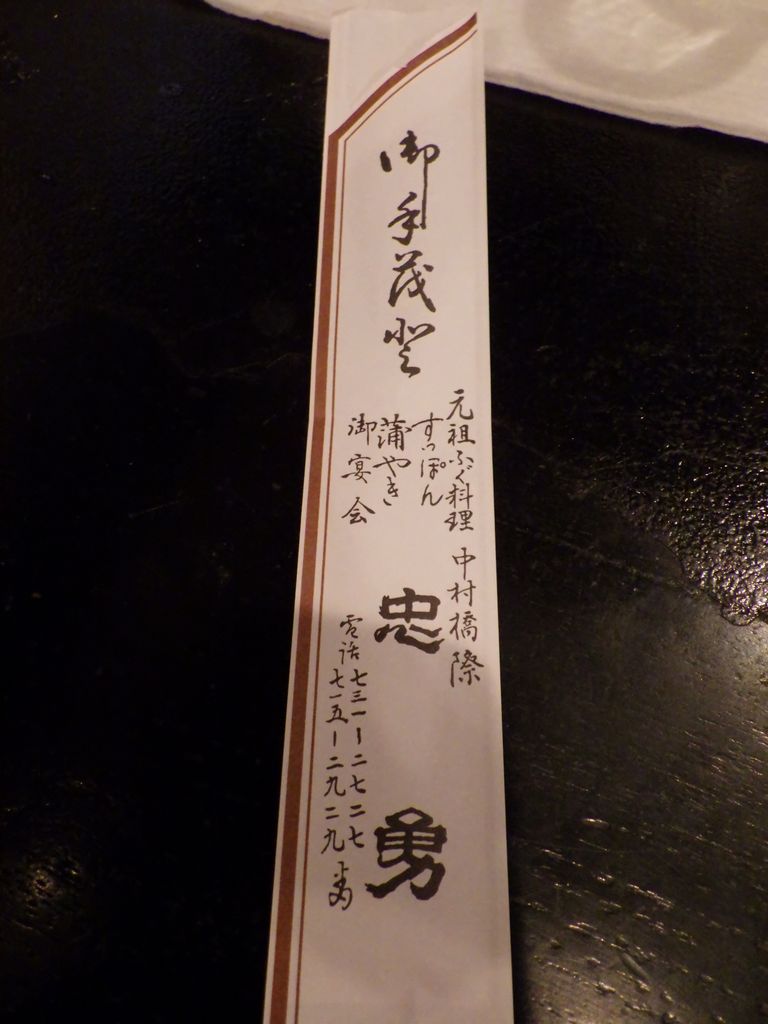 御手茂登
元祖ふぐ料理 中村橋際
すっぽん
蒲やき
御宴会
忠勇
電話 七三一-二七二七
七一五-二九二九